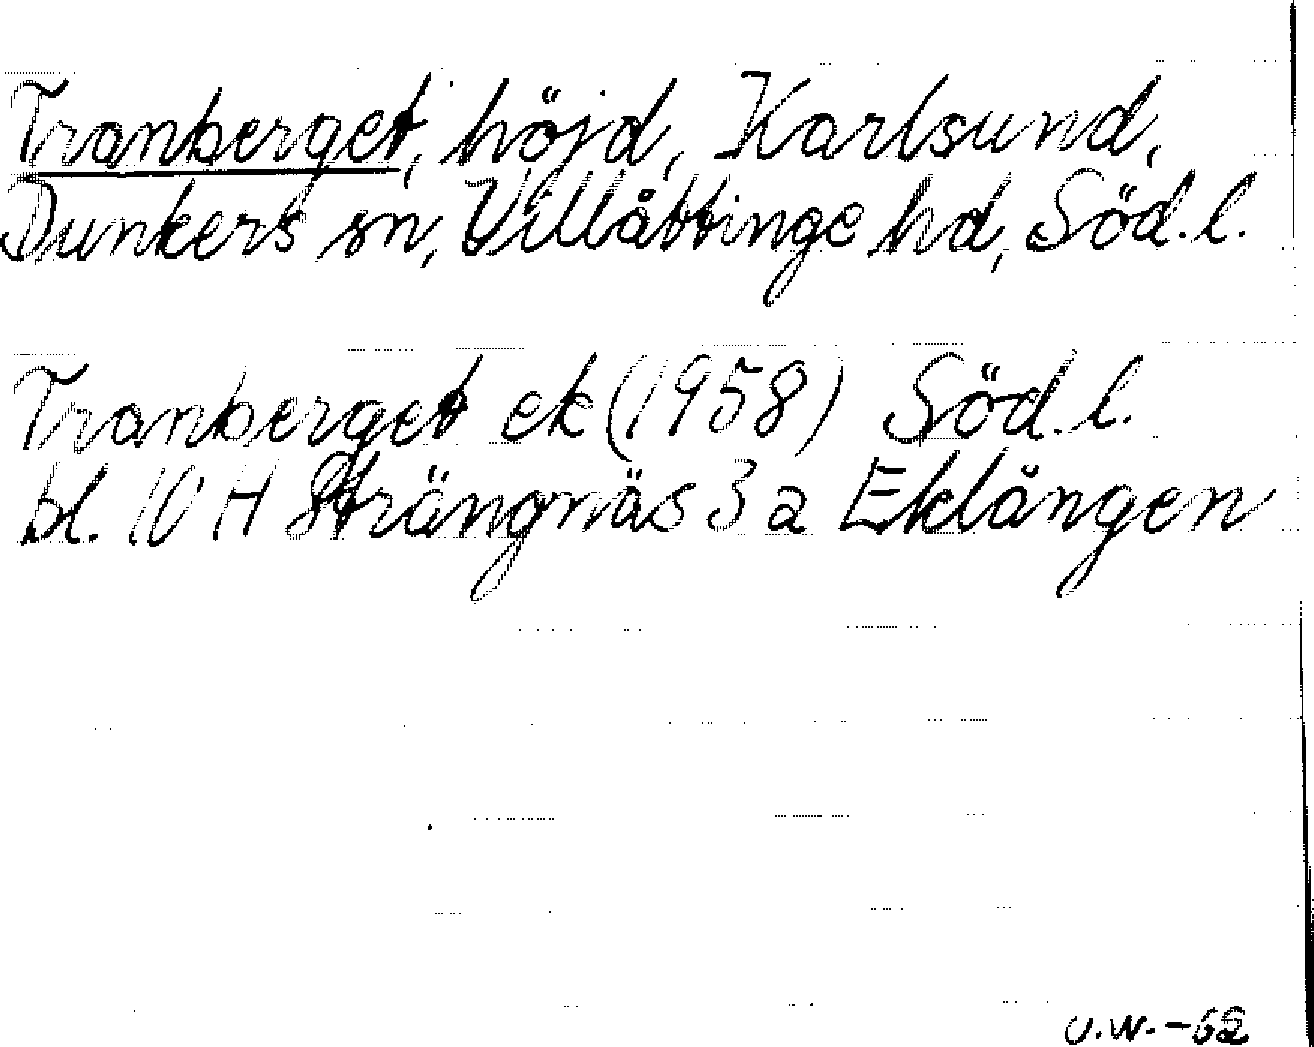 Tranberget, höjd, Karlsund,
Dunkers sn, Villåttinge hd, Söd. l.
Tranberget ek (1958) Söd. l.
bl. 10 H Strängnäs 3 a Eklången
U.W. -62